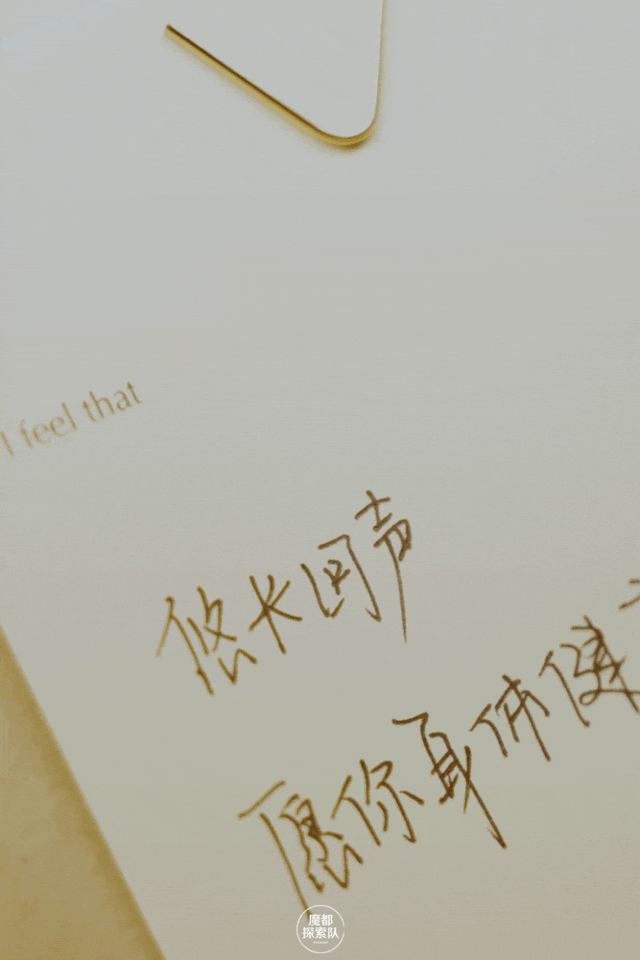 I feel that
悠长回声
愿你身体健
魔都
探索队